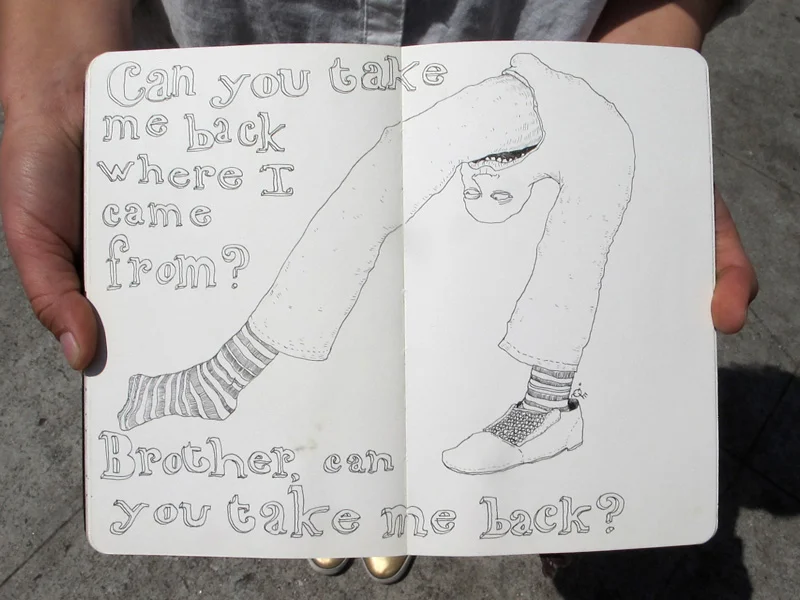 Can you take
me back
where I
came
from?
Brother, can
you take me back?